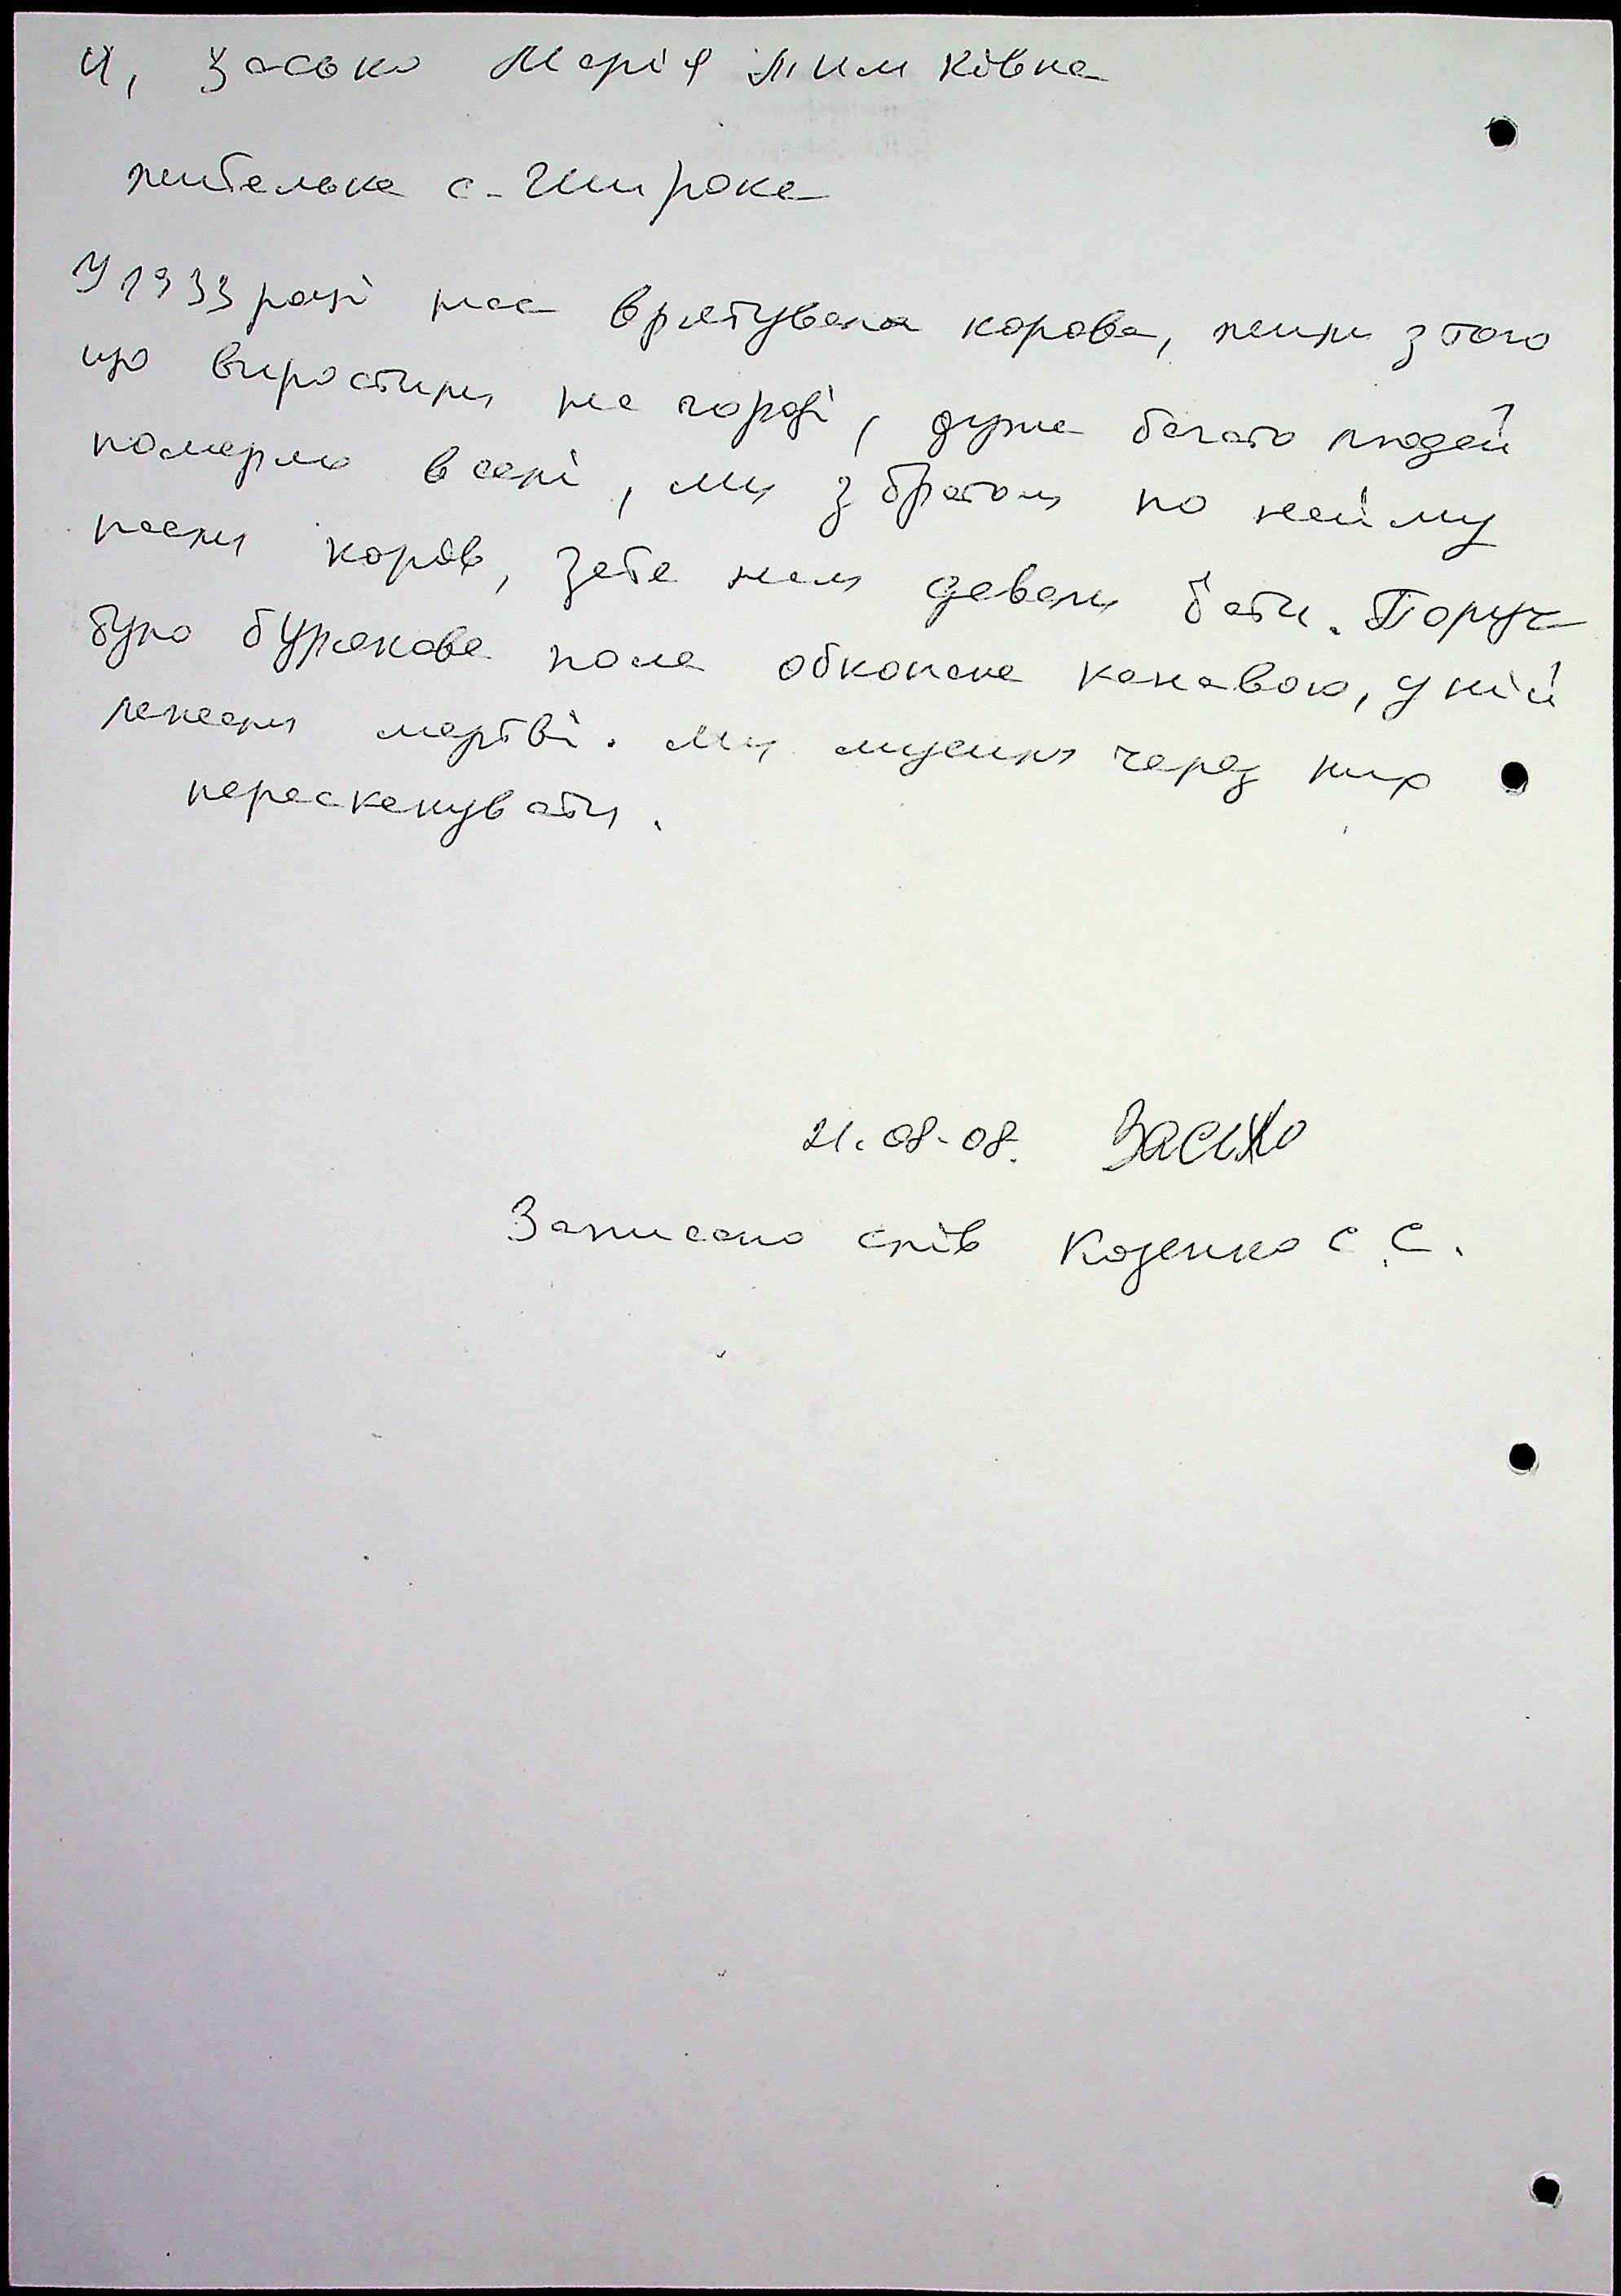 Я, Засько Марія Тимківна
жителька с. Широке
У 1933 році нас врятувала корова, жили з того
що виростили на городі, дуже багато людей
померло в селі, ми з братом по найму
пасли корів, зате нам давали їсти. Поруч
було бурякове поле обкопане канавою, у ній
лежали мертві. Ми мусили через них
перескакувати.
21.08.08. Засько
Записано слів Козенко С.С.